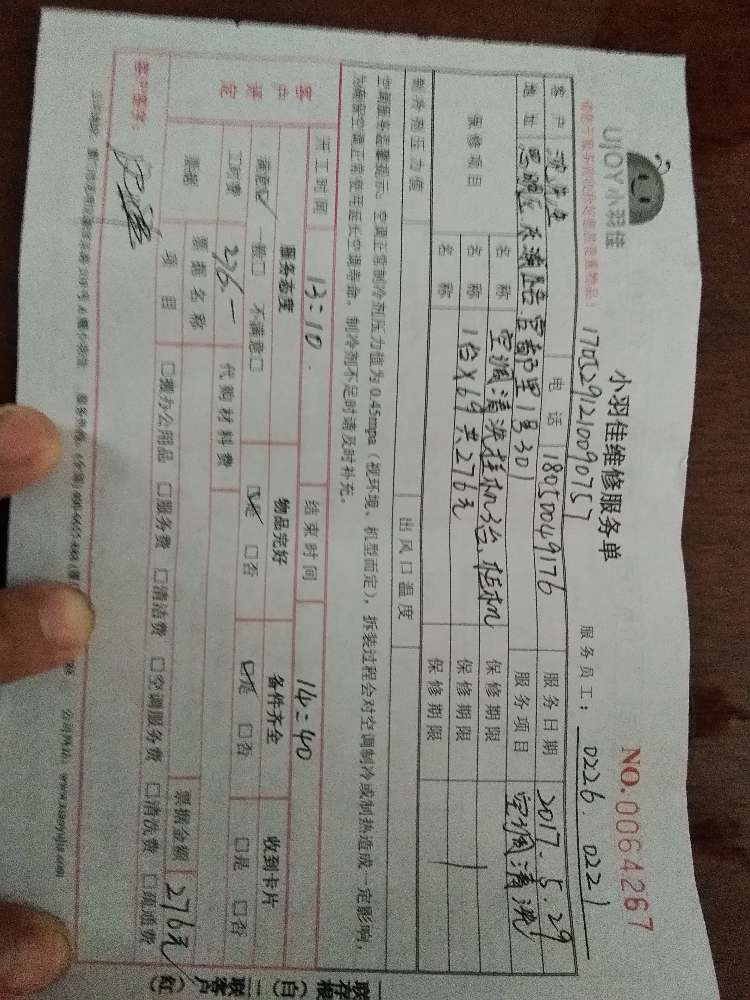 UJOY小羽佳
小羽佳维修服务单
NO.0064267
1705291210090757
服务员工: 0226. 0221
客户 电话 18050049176 服务日期 2017.5.29
地址 思明区 官都里1号301 服务项目 空调清洗
保修项目
名称 空调清洗挂机3台、柜机 保修期限
名称 1台×69共276元 保修期限
名称 保修期限
制冷剂压力值 出风口温度
空调服务温馨提示:空调正常制冷剂压力值为0.45mpa(视环境、机型而定),拆装过程会对空调制冷或制热造成一定影响,
为确保空调正常使用延长空调寿命,制冷剂不足时请及时补充。
开工时间 13:10 结束时间 14:40
客户评定
服务态度 物品完好 备件齐全 收到卡片
满意☑ 一般□ 不满意□ ☑是 □否 ☑是 □否 □是 □否
工时费 276.— 代购材料费
票据 票据名称 票据金额 276元
项目 □搬办公用品 □服务费 □清洁费 □空调服务费 □清洗费 □疏通费
客户签字:
公司网址:www.xiaoyujia.com
一联存根(白) 二联客户(红)